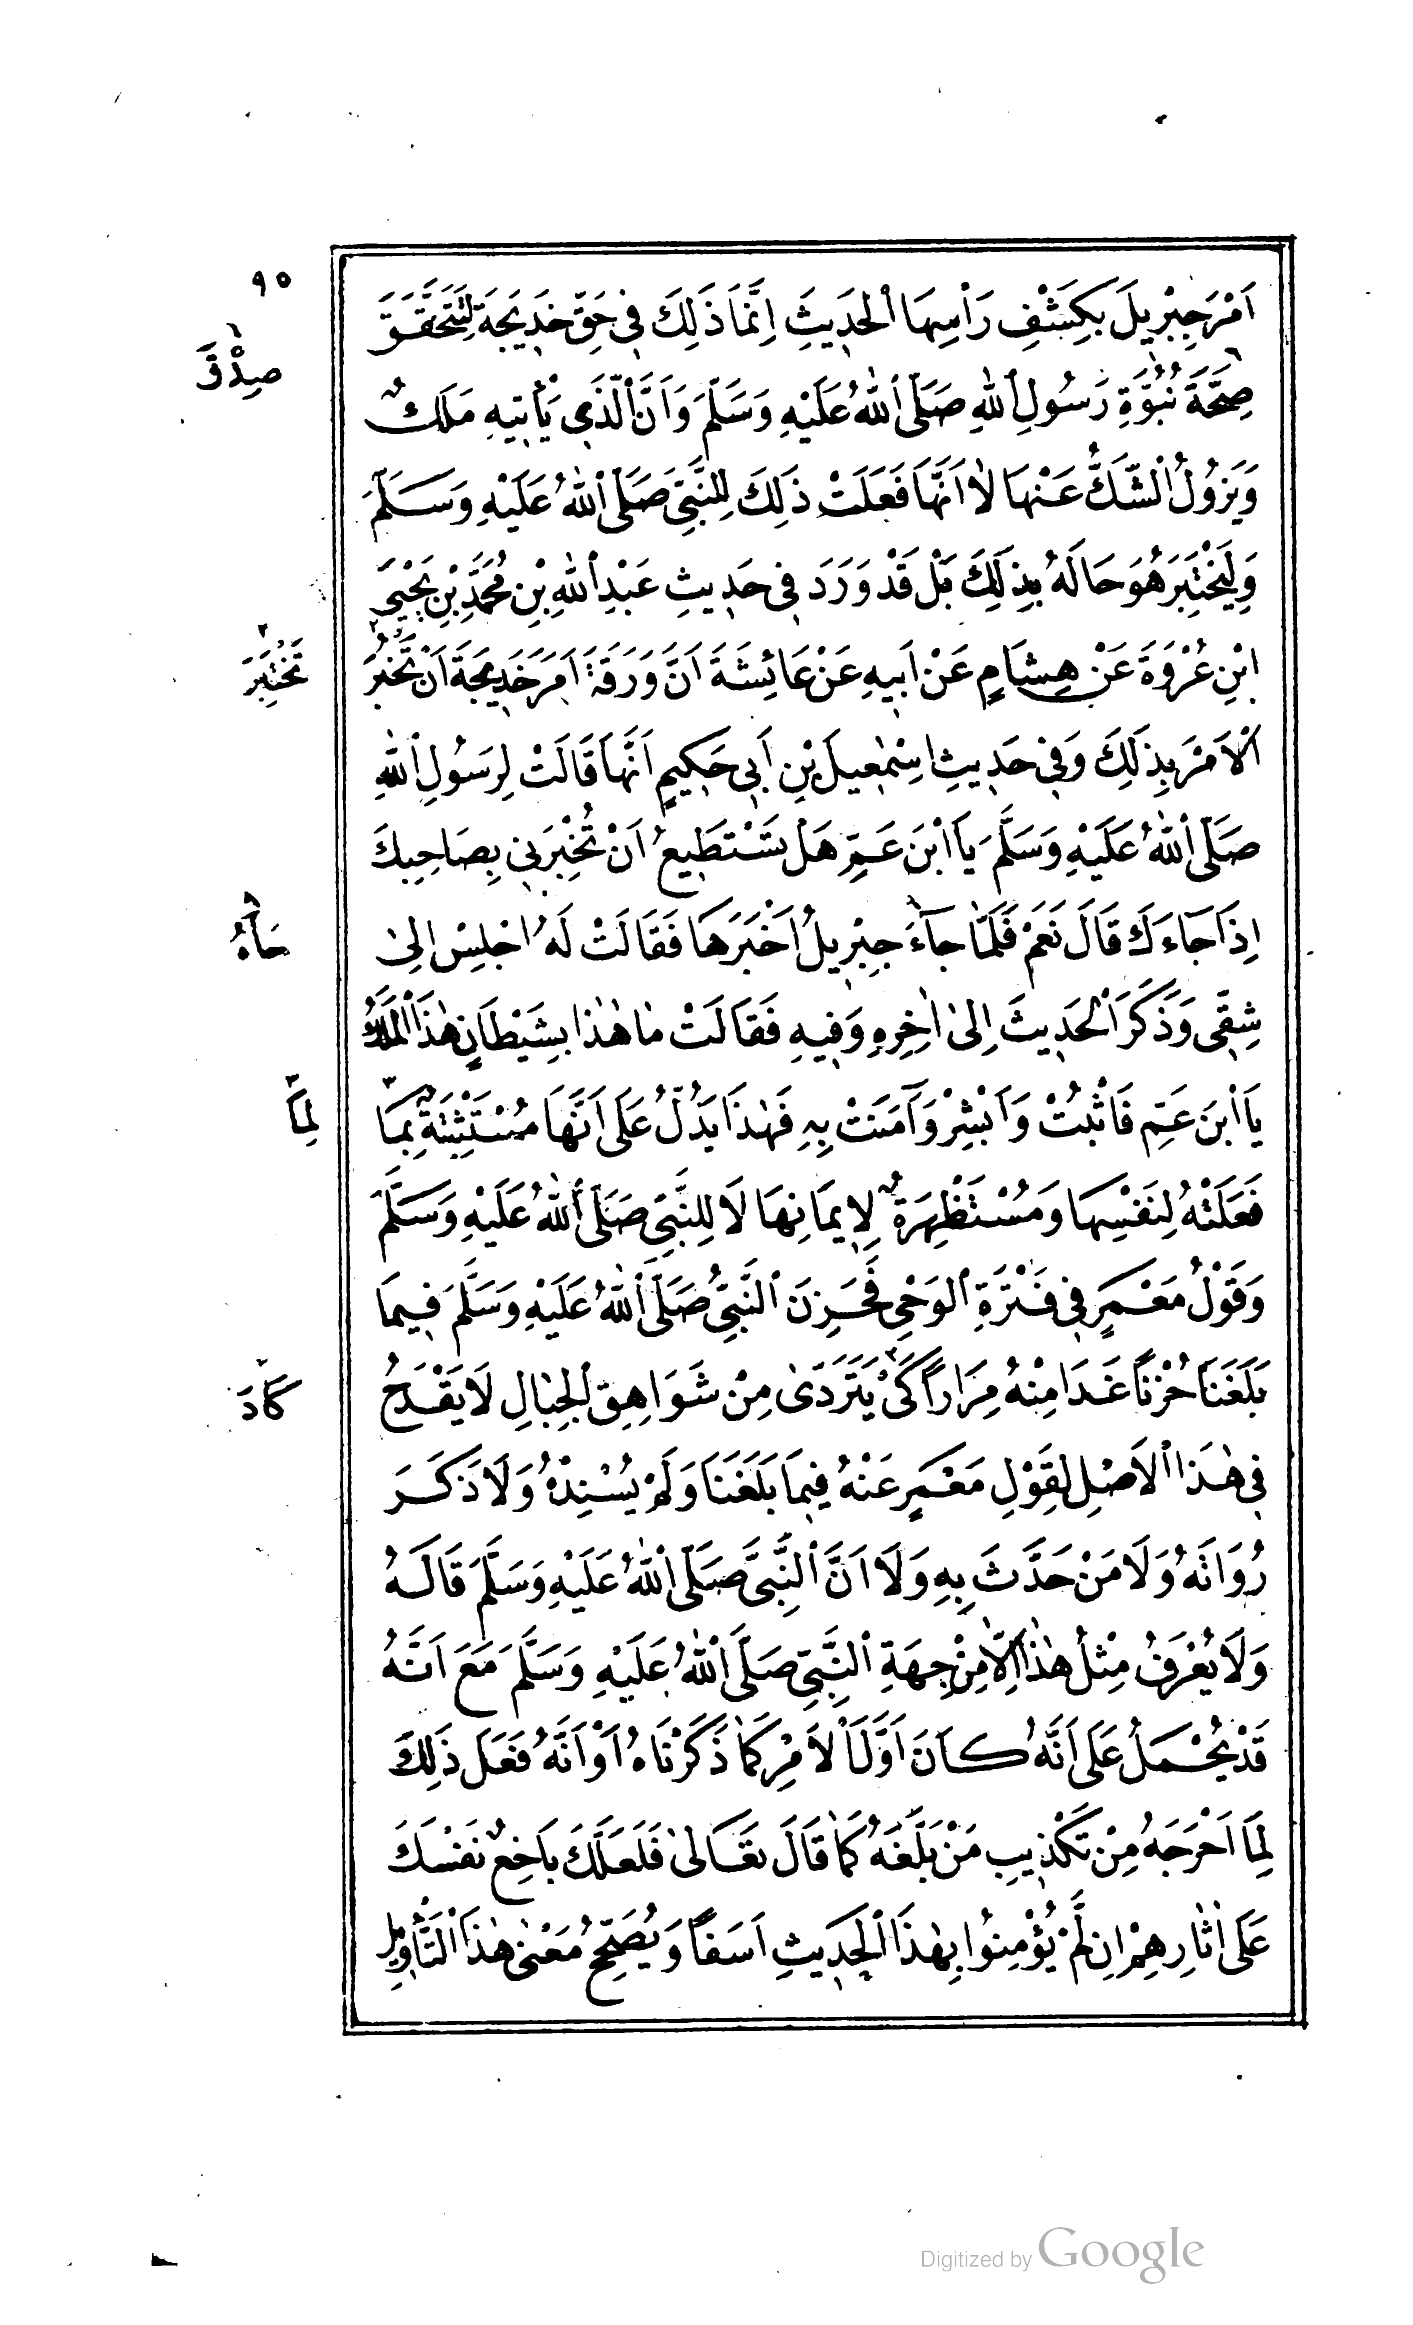 ٩٥
اَمْرَ جِبْرِيلَ بِكَشْفِ رَأْسِهَا الْحَدِيثِ اِنَّمَا ذَلِكَ فِي حَقِّ خَدِيجَةَ لِتَتَحَقَّقَ
صِحَّةَ نُبُوَّةِ رَسُولِ اللّٰهِ صَلَّى اللّٰهُ عَلَيْهِ وَسَلَّمَ وَاَنَّ الَّذِي يَأْتِيهِ مَلَكٌ
صِدْقَ
وَيَزُولُ الشَّكُّ عَنْهَا لَا اَنَّهَا فَعَلَتْ ذٰلِكَ لِلنَّبِيِّ صَلَّى اللّٰهُ عَلَيْهِ وَسَلَّمَ
وَلِيَخْتَبِرَ هُوَ حَالَهُ بِذٰلِكَ بَلْ قَدْ وَرَدَ فِي حَدِيثِ عَبْدِ اللّٰهِ بْنِ مُحَمَّدِ بْنِ يَحْيَى
ابْنِ عُرْوَةَ عَنْ هِشَامٍ عَنْ اَبِيهِ عَنْ عَائِشَةَ اَنَّ وَرَقَةَ اَمَرَ خَدِيجَةَ اَنْ تَخْبُرَ
تَخْتَبِرَ
الْاَمْرَ بِذَلِكَ وَفِي حَدِيثِ اِسْمٰعِيلَ بْنِ اَبِي حَكِيمٍ اَنَّهَا قَالَتْ لِرَسُولِ اللّٰهِ
صَلَّى اللّٰهُ عَلَيْهِ وَسَلَّمَ يَا ابْنَ عَمِّ هَلْ تَسْتَطِيعُ اَنْ تُخْبِرَنِي بِصَاحِبِكَ
اِذَا جَاءَكَ قَالَ نَعَمْ فَلَمَّا جَآءَ جِبْرِيلُ اَخْبَرَهَا فَقَالَتْ لَهُ اجْلِسْ اِلىٰ
جَاءَهُ
شِقِّي وَذَكَرَ الْحَدِيثَ اِلىٰ اٰخِرِهِ وَفِيهِ فَقَالَتْ مَا هٰذَا بِشَيْطَانٍ هٰذَا الْمَلَكُ
يَا ابْنَ عَمِّ فَاثْبُتْ وَاَبْشِرْ وَآمَنَتْ بِهِ فَهٰذَا يَدُلُّ عَلَى اَنَّهَا مُسْتَثْبِتَةٌ بِمَا
لِمَا
فَعَلَتْهُ لِنَفْسِهَا وَمُسْتَظْهِرَةٌ لِاِيمَانِهَا لَا لِلنَّبِيِّ صَلَّى اللّٰهُ عَلَيْهِ وَسَلَّمَ
وَقَوْلُ مَعْمَرٍ فِي فَتْرَةِ الْوَحْيِ فَحَزِنَ النَّبِيُّ صَلَّى اللّٰهُ عَلَيْهِ وَسَلَّمَ فِيمَا
بَلَغَنَا حُزْنًا غَدَا مِنْهُ مِرَارًا كَيْ يَتَرَدّٰى مِنْ شَوَاهِقِ الْجِبَالِ لَا يَقْدَحُ
كَادَ
فِي هٰذَا الْاَصْلِ لِقَوْلِ مَعْمَرٍ عَنْهُ فِيمَا بَلَغَنَا وَلَمْ يُسْنِدْهُ وَلَا ذَكَرَ
رُوَاتَهُ وَلَا مَنْ حَدَّثَ بِهِ وَلَا اَنَّ النَّبِيَّ صَلَّى اللّٰهُ عَلَيْهِ وَسَلَّمَ قَالَهُ
وَلَا يُعْرَفُ مِثْلُ هٰذَا اِلَّا مِنْ جِهَةِ النَّبِيِّ صَلَّى اللّٰهُ عَلَيْهِ وَسَلَّمَ مَعَ اَنَّهُ
قَدْ يُحْمَلُ عَلَى اَنَّهُ كَانَ اَوَّلَ الْاَمْرِ كَمَا ذَكَرْنَاهُ اَوْ اَنَّهُ فَعَلَ ذٰلِكَ
لِمَا اَحْرَجَهُ مِنْ تَكْذِيبِ مَنْ بَلَّغَهُ كَمَا قَالَ تَعَالىٰ فَلَعَلَّكَ بَاخِعٌ نَفْسَكَ
عَلَى اٰثَارِهِمْ اِنْ لَمْ يُؤْمِنُوا بِهٰذَا الْحَدِيثِ اَسَفًا وَيُصَحِّحُ مَعْنىٰ هٰذَا التَّأْوِيلِ
Digitized by Google